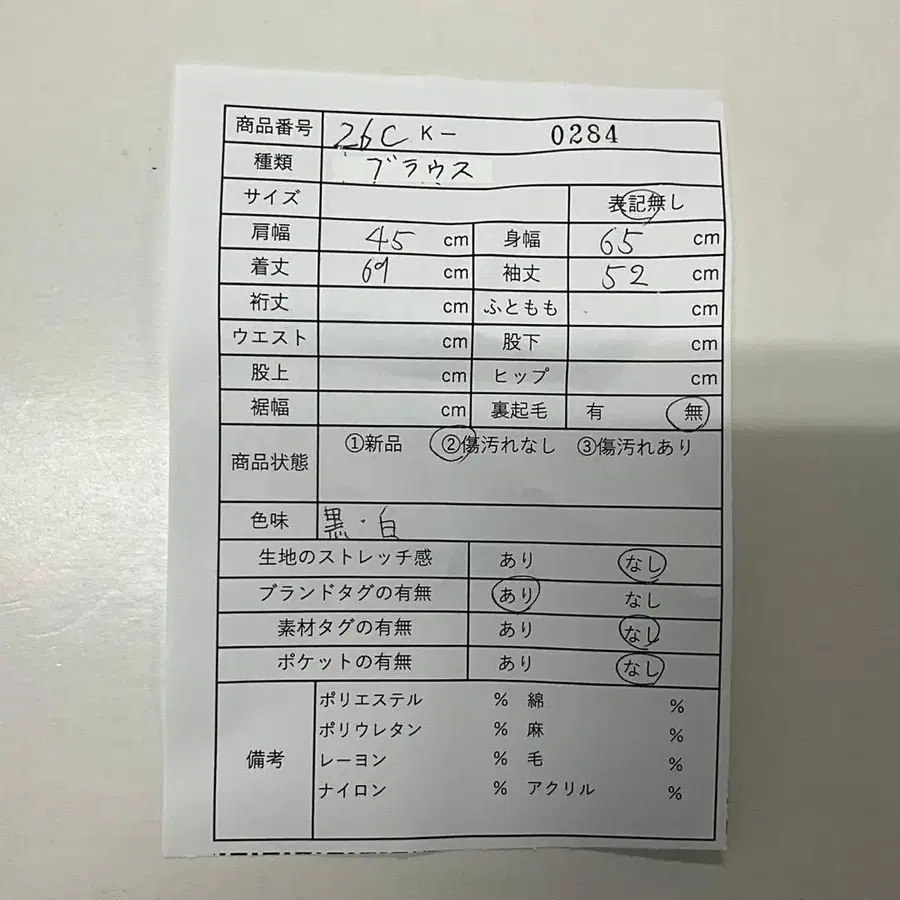 商品番号 26C K- 0284
種類 ブラウス
サイズ 表記無し
肩幅 45 cm 身幅 65 cm
着丈 69 cm 袖丈 52 cm
裄丈 cm ふともも cm
ウエスト cm 股下 cm
股上 cm ヒップ cm
裾幅 cm 裏起毛 有 無
商品状態 ①新品 ②傷汚れなし ③傷汚れあり
色味 黒・白
生地のストレッチ感 あり なし
ブランドタグの有無 あり なし
素材タグの有無 あり なし
ポケットの有無 あり なし
備考
ポリエステル % 綿 %
ポリウレタン % 麻 %
レーヨン % 毛 %
ナイロン % アクリル %